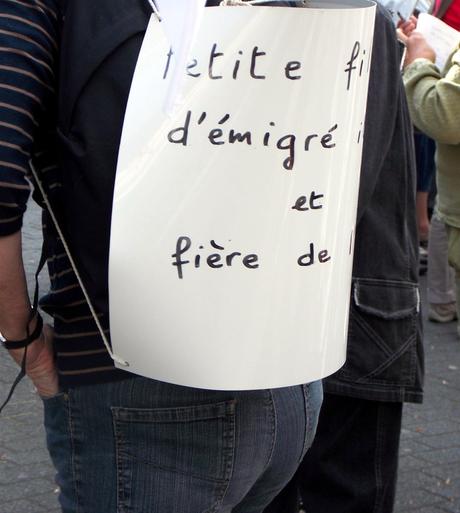 Petite fi
d'émigré i
et
fière de l